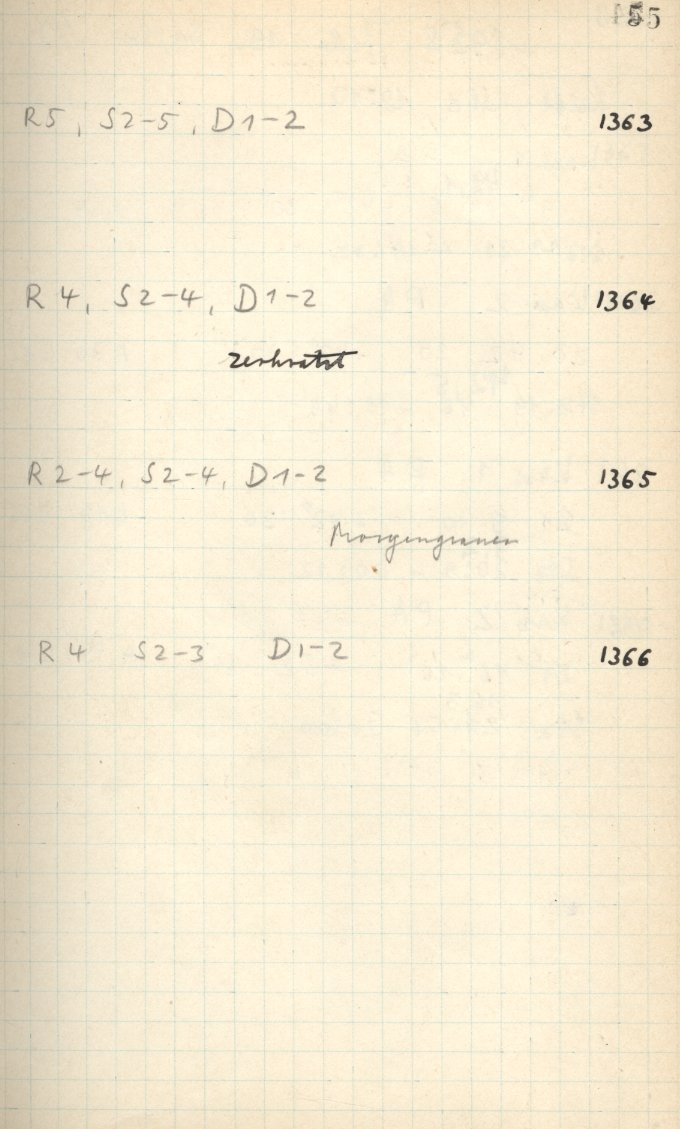 R5, S2-5, D1-2 1363
R 4, S2-4, D1-2 1364
zerkratzt
R2-4, S2-4, D1-2 1365
Morgengrauen
R 4 S2-3 D1-2 1366